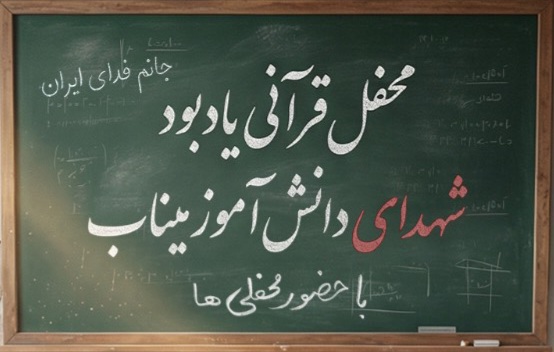 جانم فدای ایران
محفل قرآنی یادبود
شهدای دانش آموز میناب
با حضور محفلی ها